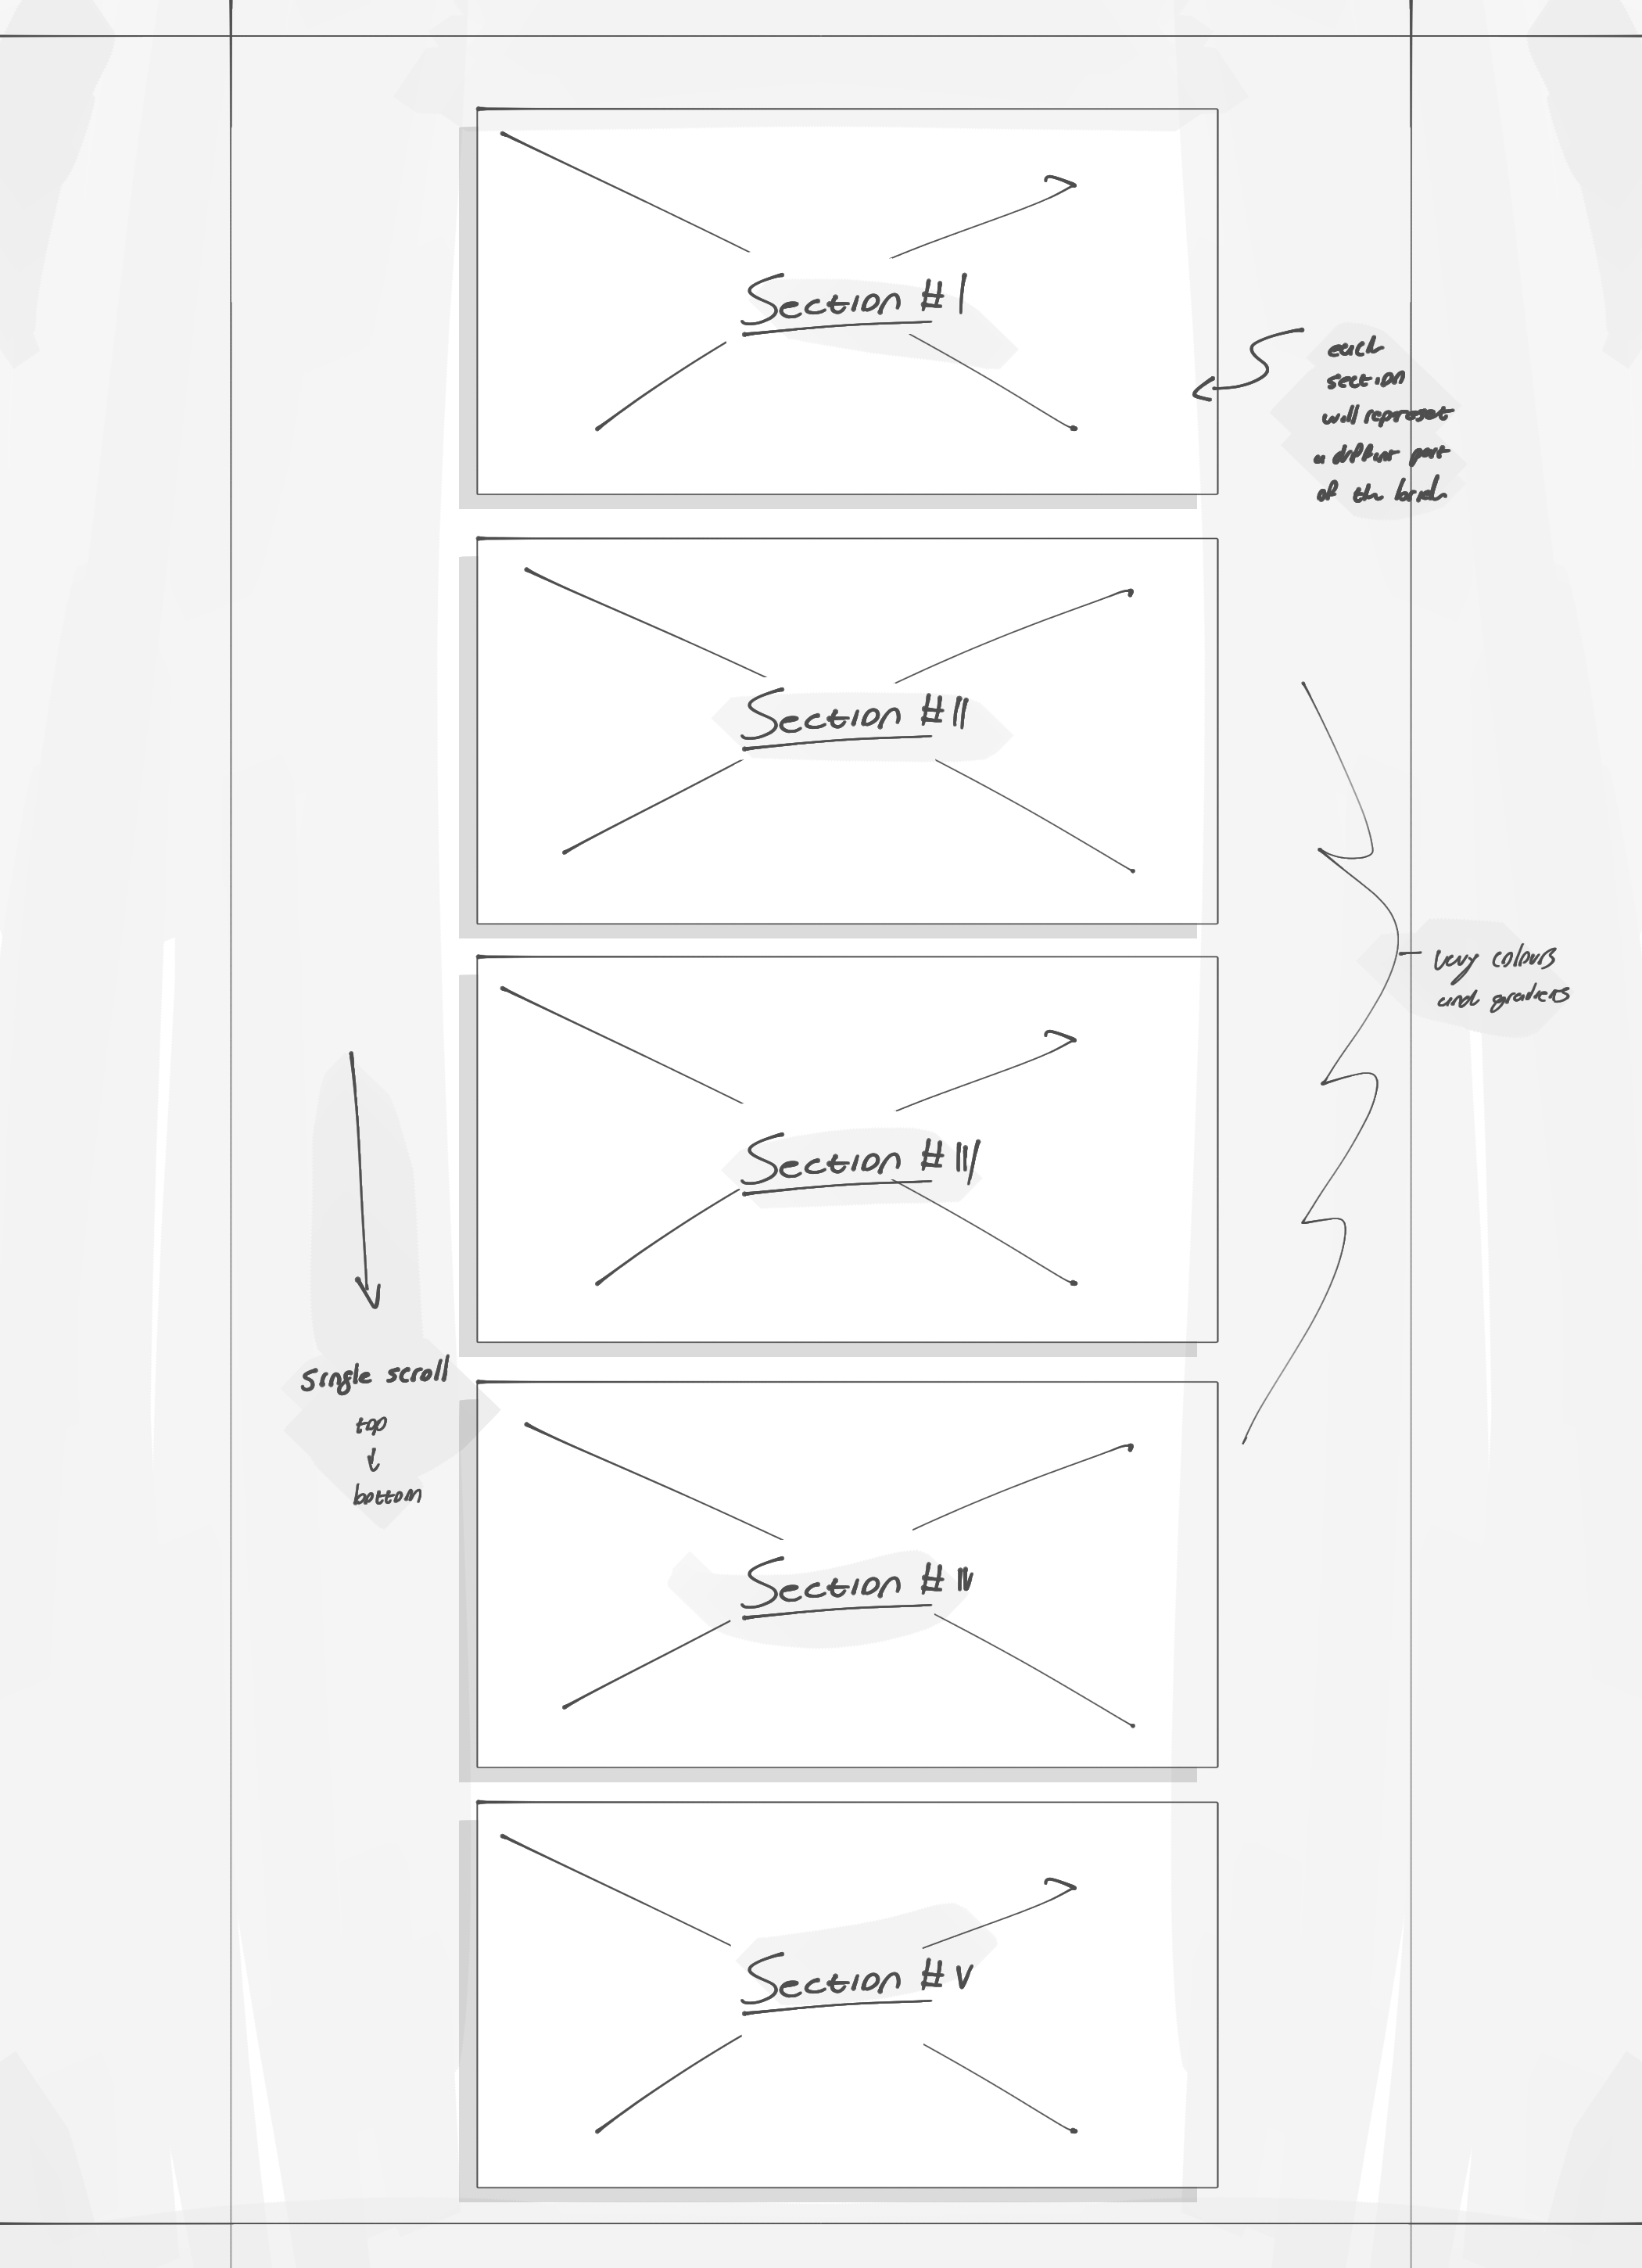 Section #I
each
section
will represet
a diffint part
of the
Section #II
Very colours
and
Section #III
Single scroll
top
bottom
Section #IV
Section #V